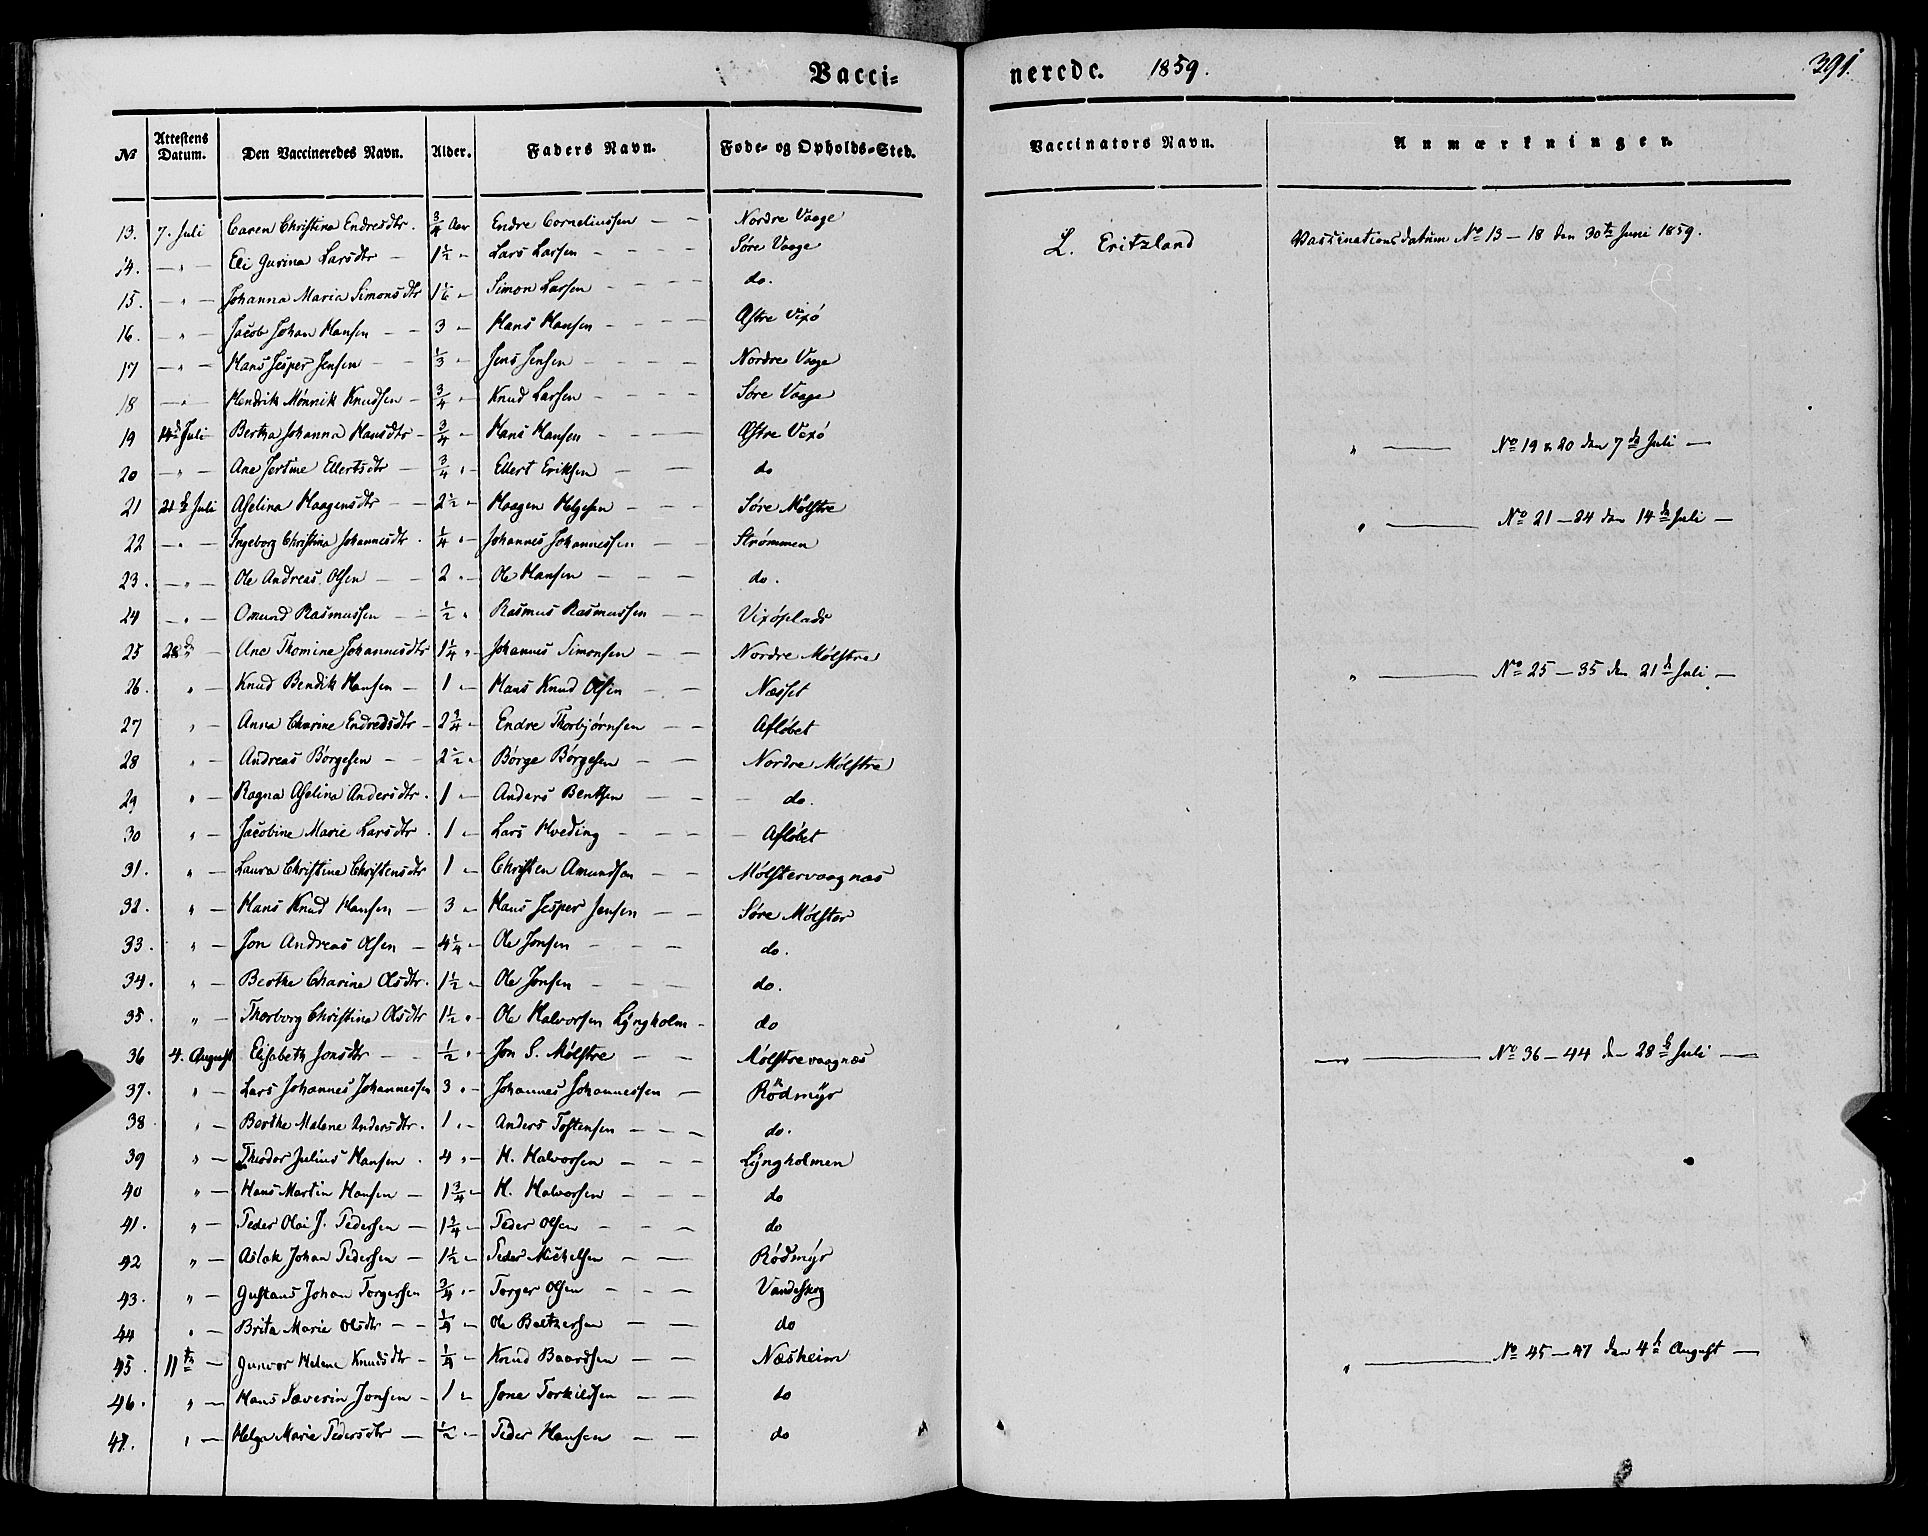 Vacci- nerede. 1859. 391.
№ Attestens Datum. Den Vaccineredes Navn. Alder. Faders Navn. Føde- og Opholds-Sted. Vaccinators Navn. Anmærkninger.
13. 7. Juli Caren Christina Endresdtr. 3/4 Aar Endre Corneliussen — — Nordre Vaage L. Eritzland Vaccinationsdatum No 13 – 18 den 30te Juni 1859.
14. — „ — Eli Gurina Larsdtr — 1½ „ Lars Larsen — — Søre Vaage
15. — „ — Johanna Maria Simonsdtr 1 1/6 „ Simon Larsen — — — — do.
16. — „ — Jacob Johan Hansen — — 3 „ Hans Hansen — — — — Østre Vixø
17 — „ — Hans Jesper Jensen — — 1/3 „ Jens Jensen — — — — Nordre Vaage
18 — „ — Hendrik Mønnik Knudsen — 3/4 „ Knud Larsen — — — — Søre Vaage
19 14d Juli — Bertha Johanna Hansdtr — 3/4 „ Hans Hansen — — — — Østre Vixø „ —— No 19 & 20 den 7de Juli —
20 — „ — Ane Jertine Ellertsdtr — 3/4 „ Ellert Eriksen — — do
21 21d Juli Aselina Haagensdtr — — 2½ „ Haagen Helgesen — — Søre Mølstre „ —— No 21 – 24 den 14de Juli —
22 — „ — Ingeborg Christina Johannesdtr. 1/4 „ Johannes Johannessen — — Strømmen
23. — „ — Ole Andreas Olsen — — 2 „ Ole Hansen — — — do.
24 — „ — Omund Rasmussen — — ½ „ Rasmus Rasmussen — — Vixøplads
25 28de „ Ane Thomine Johannesdtr 1¼ „ Johannes Simonsen — — Nordre Mølstre „ —— No 25 – 35 den 21de Juli —
26. „ — Knud Bendik Hansen — 1 „ Hans Knud Olsen — — Næsset
27 „ — Anna Charine Endredsdtr — 2 3/4 „ Endre Thorbjørnsen — — Afløbet
28 „ — Andreas Børgesen — — 2½ „ Børge Børgesen — — Nordre Mølstre
29 „ — Ragna Aselina Andersdtr. 1 „ Anders Bentsen — — — do.
30 „ — Jacobine Marie Larsdtr. 1 „ Lars Hveding — — — — Afløbet
31. „ — Laura Christina Christensdtr 1 „ Christen Amundsen — — Mølstervaagnæs
32. „ — Hans Knud Hansen — 3 „ Hans Jesper Jensen — — Søre Mølster
33. „ — Jon Andreas Olsen — 4¼ „ Ole Jonsen — — — do.
34. „ — Berthe Charine Olsdtr. 1½ „ Ole Jonsen — — — do.
35. „ — Thorborg Christina Olsdtr 1½ „ Ole Halvorsen Lyngholm — do
36 4. August Elisabeth Jonsdtr — — ½ „ Jon S. Mølstre — — Mølstrevaagnæs „ —— No 36 – 44 den 28de Juli —
37. „ — Lars Johannes Johannessen 3 „ Johannes Johannessen — Rødmyr
38. „ — Berthe Malene Andersdtr. 1 „ Anders Tostensen — — — do.
39 „ — Theodor Julius Hansen . 4 „ H. Halvorsen — — — Lyngholmen
40 „ — Hans Martin Hansen — 1 3/4 „ H. Halvorsen — — — do
41. „ — Peder Olai J. Pedersen — 1¼ „ Peder Olsen — — — do
42 „ — Aslak Johan Pedersen — 1½ „ Peder Michelsen — — Rødmyr
43. „ — Gustans Johan Torgersen 3/4 „ Torger Olsen — — — Vandeskog
44 „ — Brita Marie Olsdtr — — 1/4 „ Ole Baltzersen — — do
45. 11te — Gunvor Helene Knudsdtr — 1/4 „ Knud Baardsen — — Næsheim „ —— No 45 – 47 den 4de August —
46. „ — Hans Severin Jonsen — 1 „ Jone Torkildsen — — do
47. „ — Helga Marie Pedersdtr — ½ „ Peder Hansen — — do